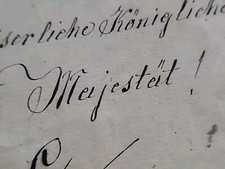 serliche Königliche
Majestät!